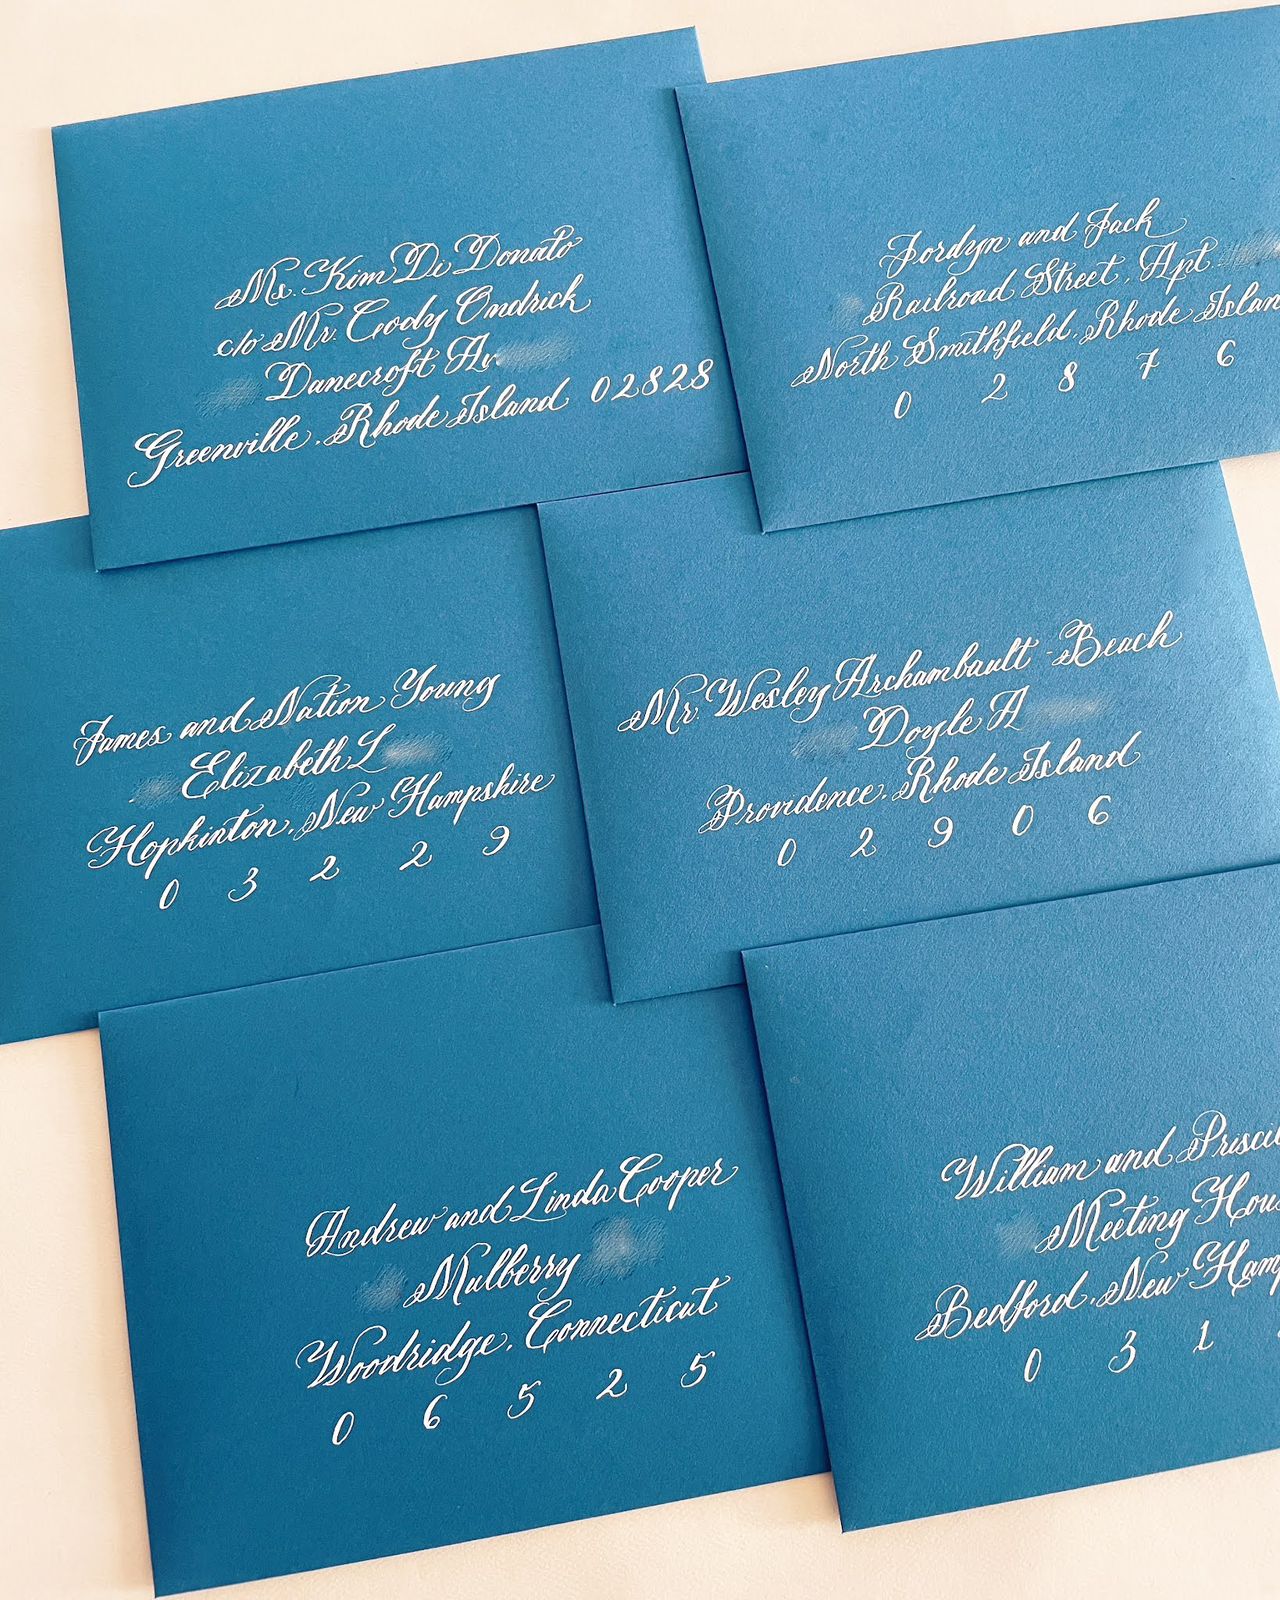 Ms. Kim Di Donato
c/o Mr. Cody Ondrick
Danecroft Av
Greenville, Rhode Island 02828
Jordyn and Jack
Railroad Street, Apt.
North Smithfield, Rhode Islan
0 2 8 7 6
James and Nation Young
Elizabeth L
Hopkinton, New Hampshire
0 3 2 2 9
Mr. Wesley Archambault-Beach
Doyle A
Providence, Rhode Island
0 2 9 0 6
Andrew and Linda Cooper
Mulberry
Woodridge, Connecticut
0 6 5 2 5
William and Prisci
Meeting Hou
Bedford, New Ham
0 3 1